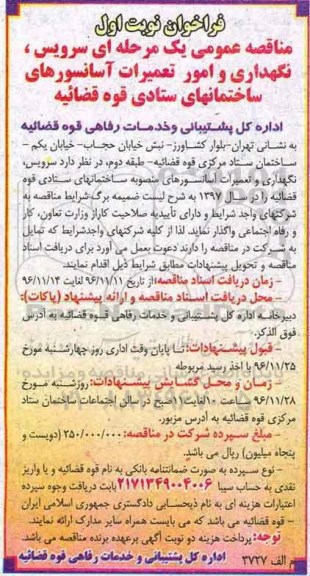 فراخوان نوبت اول
مناقصه عمومی یک مرحله ای سرویس ،
نگهداری و امور تعمیرات آسانسورهای
ساختمانهای ستادی قوه قضائیه
اداره کل پشتیبانی وخدمات رفاهی قوه قضائیه
به نشانی تهران-بلوار کشاورز- نبش خیابان حجاب- خیابان یکم –
ساختمان ستاد مرکزی قوه قضائیه- طبقه دوم، در نظر دارد سرویس،
نگهداری و تعمیرات آسانسورهای منصوبه ساختمانهای ستادی قوه
قضائیه را در سال ۱۳۹۷ به شرح لیست ضمیمه برگ شرایط مناقصه به
شرکتهای واجد شرایط و دارای تأییدیه صلاحیت کاراز وزارت تعاون، کار
و رفاه اجتماعی واگذار نماید. لذا از کلیه شرکتهای واجدشرایط که تمایل
به شرکت در مناقصه را دارند دعوت بعمل می آورد برای دریافت اسناد
مناقصه و تحویل پیشنهادات مطابق شرایط ذیل اقدام نمایند.
- زمان دریافت اسناد مناقصه:از تاریخ ۹۶/۱۱/۱۱ لغایت ۹۶/۱۱/۱۴
- محل دریافت اسناد مناقصه و ارائه پیشنهاد (پاکات):
دبیرخانه اداره کل پشتیبانی و خدمات رفاهی قوه قضائیه به آدرس
فوق الذکر.
- قبول پیشنهادات: تا پایان وقت اداری روز چهارشنبه مورخ
۹۶/۱۱/۲۵ با اخذ رسید مربوطه
- زمان و محل گشایش پیشنهادات: روزشنبه مورخ
۹۶/۱۱/۲۸ ساعت ۱۰ صبح در سالن اجتماعات ساختمان ستاد
مرکزی قوه قضائیه به آدرس مزبور.
- مبلغ سپرده شرکت در مناقصه: ۲۵۰/۰۰۰/۰۰۰ (دویست و
پنجاه میلیون) ریال می باشد.
- نوع سپرده به صورت ضمانتنامه بانکی به نام قوه قضائیه و یا واریز
نقدی به حساب سیبا ۲۱۷۱۳۴۹۰۰۴۰۰۶ بابت دریافت وجوه سپرده
اعتبارات هزینه ای به نام ذیحسابی دادگستری جمهوری اسلامی ایران
- قوه قضائیه می باشد که می بایست همراه سایر مدارک ارائه نمایند.
توجه: پرداخت هزینه دو نوبت آگهی برعهده برنده مناقصه می باشد.
م الف ۳۷۲۷ اداره کل پشتیبانی و خدمات رفاهی قوه قضائیه